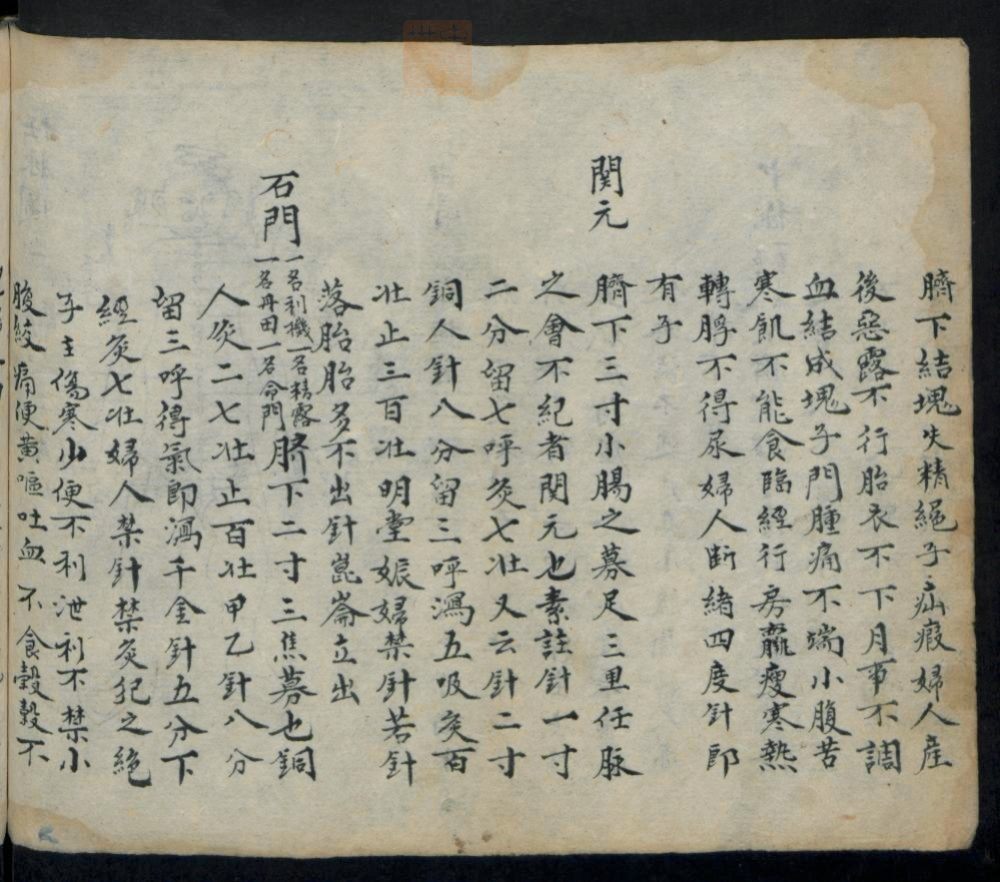 臍下結塊失精絕子疝瘕婦人產
後惡露不行胎衣不下月事不調
血結成塊子門腫痛不端小腹苦
寒飢不能食臨經行房羸瘦寒熱
轉脬不得尿婦人斷緒四度針即
有子
関元
臍下三寸小腸之募足三里任脉
之會不紀者関元也素註針一寸
二分留七呼灸七壯又云針二寸
銅人針八分留三呼瀉五吸灸百
壯止三百壯明堂娠婦禁針若針
落胎胎多不出針崑崙立出
石門
一名利機一名精露
一名丹田一名命門
臍下二寸三焦募也銅
人灸二七壯止百壯甲乙針八分
留三呼得氣即瀉千金針五分下
經灸七壯婦人禁針禁灸犯之絕
子主傷寒少便不利泄利不禁小
腹絞痛便黃嘔吐血不食穀穀不